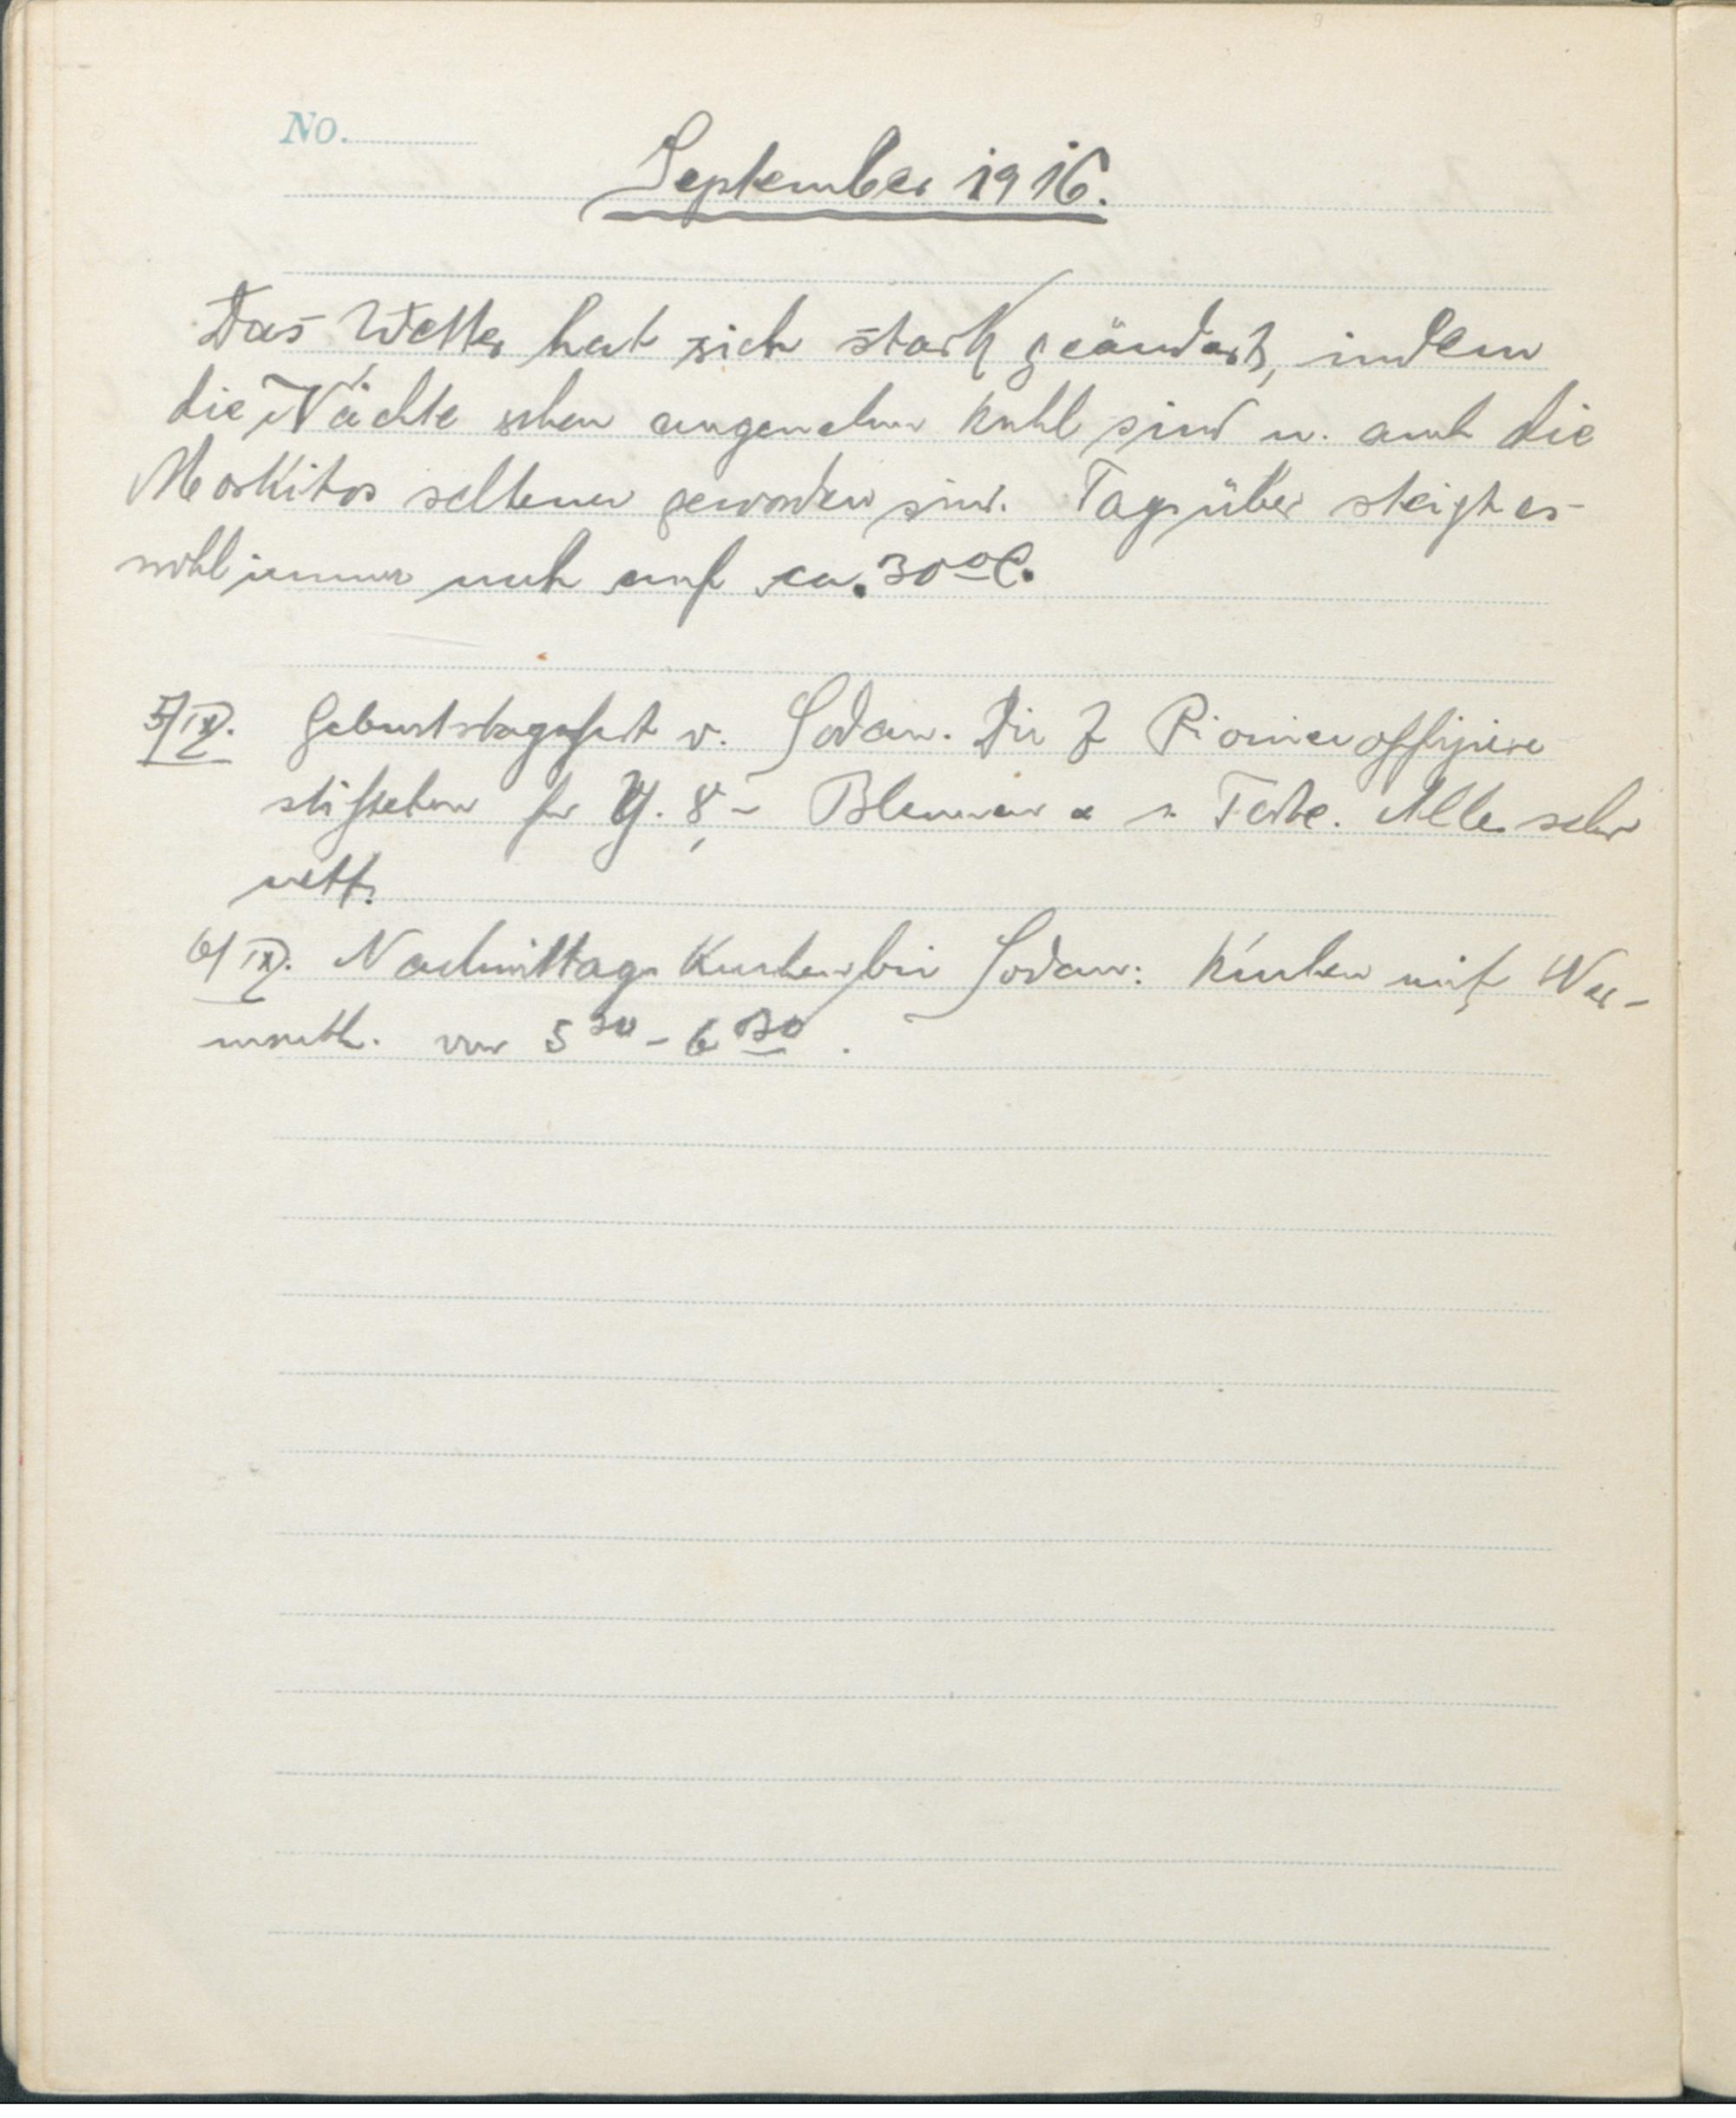 No.
September 1916.
Das Wetter hat sich stark geändert, indem
die Nächte schon angenehm kühl sind u. auch die
Moskitos seltener geworden sind. Tagsüber steigt es
wohl immer noch auf ca. 30°C.
5/IX. Geburtstagsfest v. Sodan. Die 7 Pionieroffiziere
stifteten für Y. 8,- Blumen Torte. Alles sehr
nett.
6/IX. Nachmittags Kuchen bei Sodan: Kuchen mit Wer-
muth. von 5³⁰ - 6³⁰.